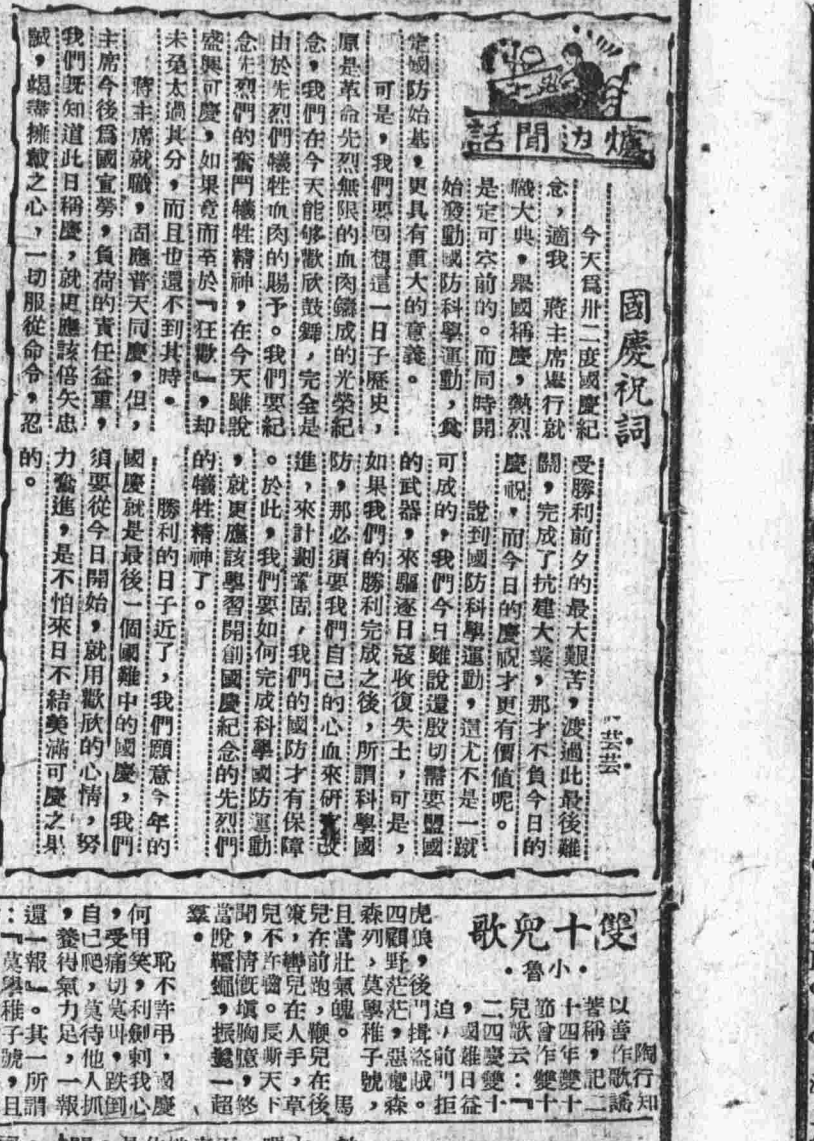 爐边閒話
國慶祝詞
芸芸
今天爲卅二度國慶紀
念，適我　蔣主席舉行就
職大典，舉國稱慶，熱烈
是定可空前的。而同時開
始發動國防科學運動，奠
定國防始基，更具有重大的意義。
可是，我們要回想這一日子歷史，
原是革命先烈無限的血肉鑄成的光榮紀
念，我們在今天能够歡欣鼓舞，完全是
由於先烈們犧牲血肉的賜予。我們要紀
念先烈們的奮鬥犧牲精神，在今天雖說
盛興可慶，如果竟而至於『狂歡』，却
未免太過其分，而且也還不到其時。
蔣主席就職，固應普天同慶，但，
主席今後爲國宣勞，負荷的責任益重，
我們旣知道此日稱慶，就更應該倍矢忠
誠，竭盡擁戴之心，一切服從命令，忍
受勝利前夕的最大艱苦，渡過此最後難
關，完成了抗建大業，那才不負今日的
慶祝，而今日的慶祝才更有價値呢。
說到國防科學運動，這尤不是一蹴
可成的，我們今日雖說還殷切需要盟國
的武器，來驅逐日寇收復失土，可是，
如果我們的勝利完成之後，所謂科學國
防，那必須要我們自己的心血來研究改
進，來計劃鞏固，我們的國防才有保障
。於此，我們要如何完成科學國防運動
，就更應該學習開創國慶紀念的先烈們
的犧牲精神了。
勝利的日子近了，我們願意今年的
國慶就是最後一個國難中的國慶，我們
須要從今日開始，就用歡欣的心情，努
力奮進，是不怕來日不結美滿可慶之果
的。
雙十兒歌
•小魯•
陶行知
以善作歌謠
著稱，記二
十四年雙十
節會作雙十
兒歌云：『
二四慶雙十
，國難日益
迫，前門拒
虎狼，後門揖盜賊。
四顧野茫茫，惡魔森
森列，莫學稚子號，
且當壯氣魄。　馬
兒在前跑，鞭兒在後
策，轡兒在人手，草
兒不許嚙。長嘶天下
聞，情慨塡胸臆，終
當脫韁繩，振鬣一超
羣。
恥不許弔，國慶
何用笑，利劍刺我心
，受痛切莫叫，跌倒
自己爬，莫待他人抓
，養得氣力足，一報
還一報』。其一所謂
：『莫學稚子號，且